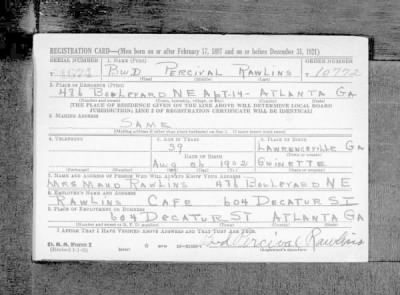 REGISTRATION CARD—(Men born on or after February 17, 1897 and on or before December 31, 1921)
SERIAL NUMBER 1. NAME (Print) ORDER NUMBER
T BUD PERCIVAL RAWLINS T 10772
(First) (Middle) (Last)
2. PLACE OF RESIDENCE (Print)
476 BOULEVARD NE APT-14- ATLANTA GA
(Number and street) (Town, township, village, or city) (County) (State)
[THE PLACE OF RESIDENCE GIVEN ON THE LINE ABOVE WILL DETERMINE LOCAL BOARD
JURISDICTION; LINE 2 OF REGISTRATION CERTIFICATE WILL BE IDENTICAL]
3. MAILING ADDRESS
SAME
[Mailing address if other than place indicated on line 2. If same insert word same]
4. TELEPHONE 5. AGE IN YEARS 6. PLACE OF BIRTH
39 LAWRENCEVILLE GA
DATE OF BIRTH
AUG 06 1902 GWINETTE
7. NAME AND ADDRESS OF PERSON WHO WILL ALWAYS KNOW YOUR ADDRESS
MRS MAUD RAWLINS 476 BOULEVARD NE
8. EMPLOYER'S NAME AND ADDRESS
RAWLINS CAFE 604 DECATUR ST
9. PLACE OF EMPLOYMENT OR BUSINESS
604 DECATUR ST ATLANTA GA
(Number and street or R. F. D. number) (Town) (County) (State)
I AFFIRM THAT I HAVE VERIFIED ABOVE ANSWERS AND THAT THEY ARE TRUE.
D. S. S. Form 1
(over)
Bud Percival Rawlins
(Registrant's signature)